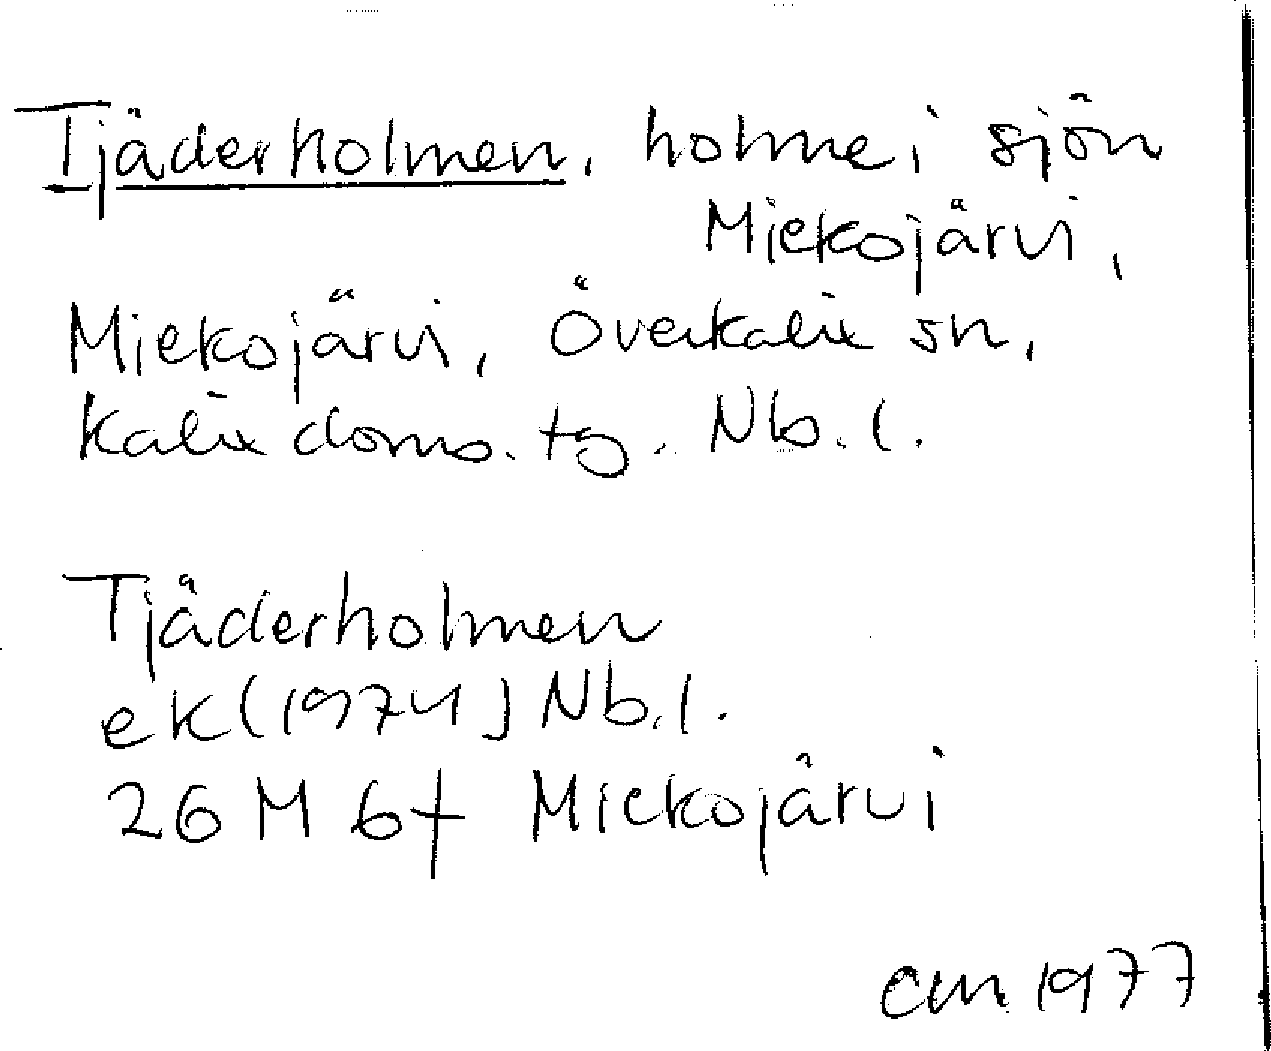 Tjäderholmen, holme i sjön
Miekojärvi,
Miekojärvi, Överkalix sn,
Kalix doms. tg. Nb. l.
Tjäderholmen
ek (1974) Nb. l.
26 M 6f Miekojärvi
cm 1977